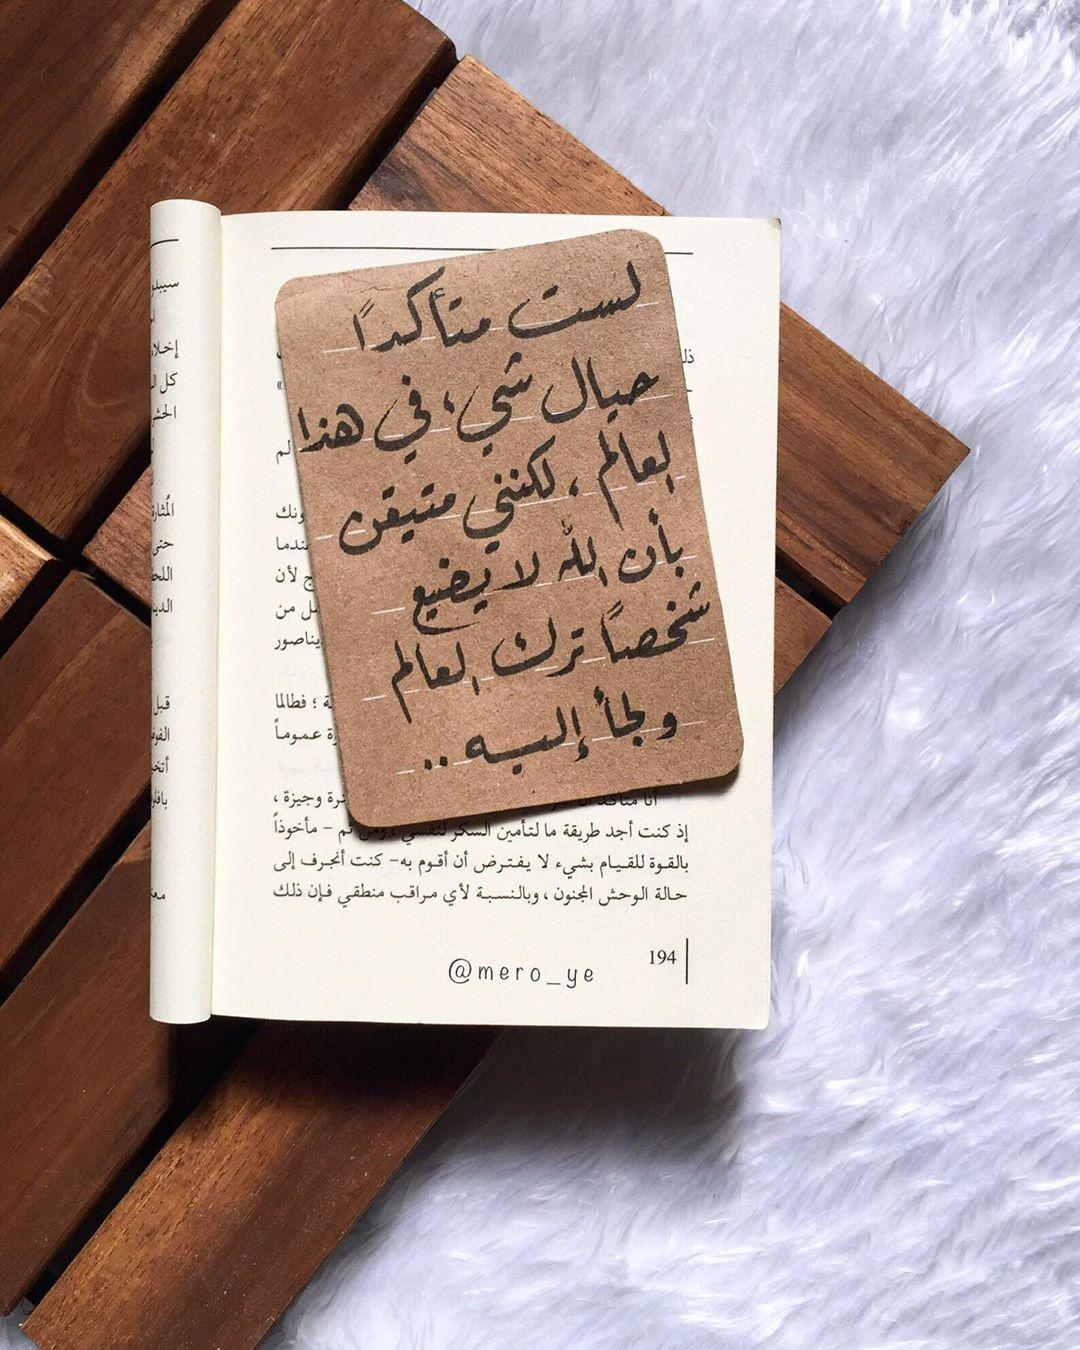 لست متأكدًا
حيال شيء، في هذا
العالم، لكنني متيقن
بأن الله لا يضيع
شخصاً ترك العالم
ولجأ إليه..
سيبدو
كل
حتى
قبل
لم
ندما
ج لأن
مل من
يناصور
ة ؛ فطالما
ة عموماً
وجيزة ،
إذ كنت أجد طريقة ما لتأمين السكر لنفسي ، ومن ثم – مأخوذاً
بالقوة للقيام بشيء لا يفترض أن أقوم به– كنت أنجرف إلى
حالة الوحش المجنون ، وبالنسبة لأي مراقب منطقي فإن ذلك
194
@mero_ye